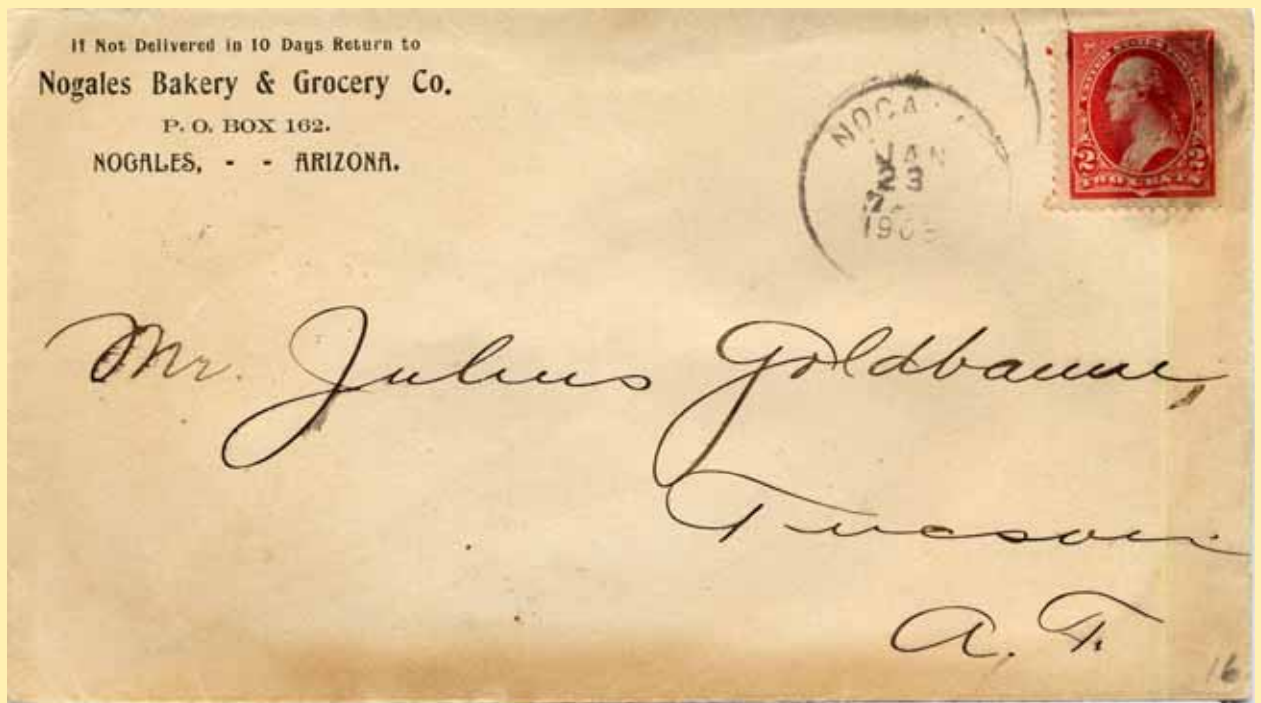 If Not Delivered in 10 Days Return to
Nogales Bakery & Grocery Co.
P. O. BOX 162.
NOGALES, - - ARIZONA.
JAN
3
2 2
TWO CENTS
Mr. Julius Goldbaum,
Tucson
A. T.
16